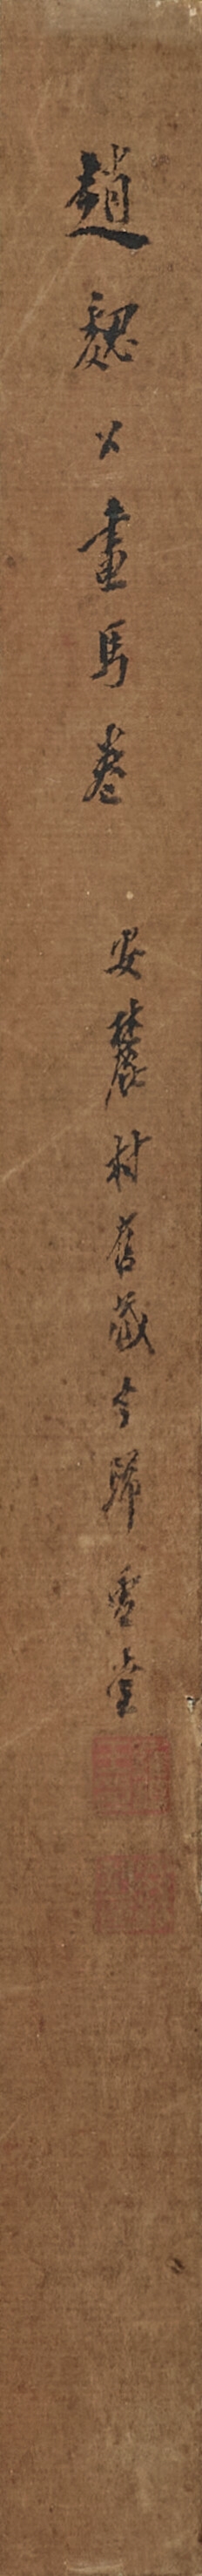 趙魏公畫馬卷 安麓村舊藏今歸雪堂